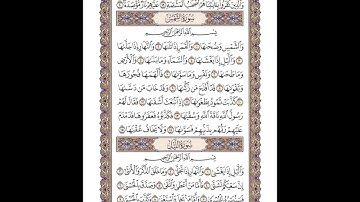 وَالَّذِينَ كَفَرُوا بِـَٔايَٰتِنَا هُمْ أَصْحَٰبُ ٱلْمَشْـَٔمَةِ ۝ عَلَيْهِمْ نَارٌ مُّؤْصَدَةٌۢ ۝
سُورَةُ الشَّمْسِ
بِسْمِ ٱللَّهِ ٱلرَّحْمَٰنِ ٱلرَّحِيمِ
وَٱلشَّمْسِ وَضُحَىٰهَا ۝ وَٱلْقَمَرِ إِذَا تَلَىٰهَا ۝ وَٱلنَّهَارِ إِذَا جَلَّىٰهَا
۝ وَٱلَّيْلِ إِذَا يَغْشَىٰهَا ۝ وَٱلسَّمَآءِ وَمَا بَنَىٰهَا ۝ وَٱلْأَرْضِ
وَمَا طَحَىٰهَا ۝ وَنَفْسٍ وَمَا سَوَّىٰهَا ۝ فَأَلْهَمَهَا فُجُورَهَا
وَتَقْوَىٰهَا ۝ قَدْ أَفْلَحَ مَن زَكَّىٰهَا ۝ وَقَدْ خَابَ مَن دَسَّىٰهَا
۝ كَذَّبَتْ ثَمُودُ بِطَغْوَىٰهَآ ۝ إِذِ ٱنۢبَعَثَ أَشْقَىٰهَا ۝ فَقَالَ لَهُمْ
رَسُولُ ٱللَّهِ نَاقَةَ ٱللَّهِ وَسُقْيَٰهَا ۝ فَكَذَّبُوهُ فَعَقَرُوهَا فَدَمْدَمَ
عَلَيْهِمْ رَبُّهُم بِذَنۢبِهِمْ فَسَوَّىٰهَا ۝ وَلَا يَخَافُ عُقْبَٰهَا ۝
سُورَةُ اللَّيْلِ
بِسْمِ ٱللَّهِ ٱلرَّحْمَٰنِ ٱلرَّحِيمِ
وَٱلَّيْلِ إِذَا يَغْشَىٰ ۝ وَٱلنَّهَارِ إِذَا تَجَلَّىٰ ۝ وَمَا خَلَقَ ٱلذَّكَرَ وَٱلْأُنثَىٰٓ ۝
إِنَّ سَعْيَكُمْ لَشَتَّىٰ ۝ فَأَمَّا مَنْ أَعْطَىٰ وَٱتَّقَىٰ ۝ وَصَدَّقَ بِٱلْحُسْنَىٰ